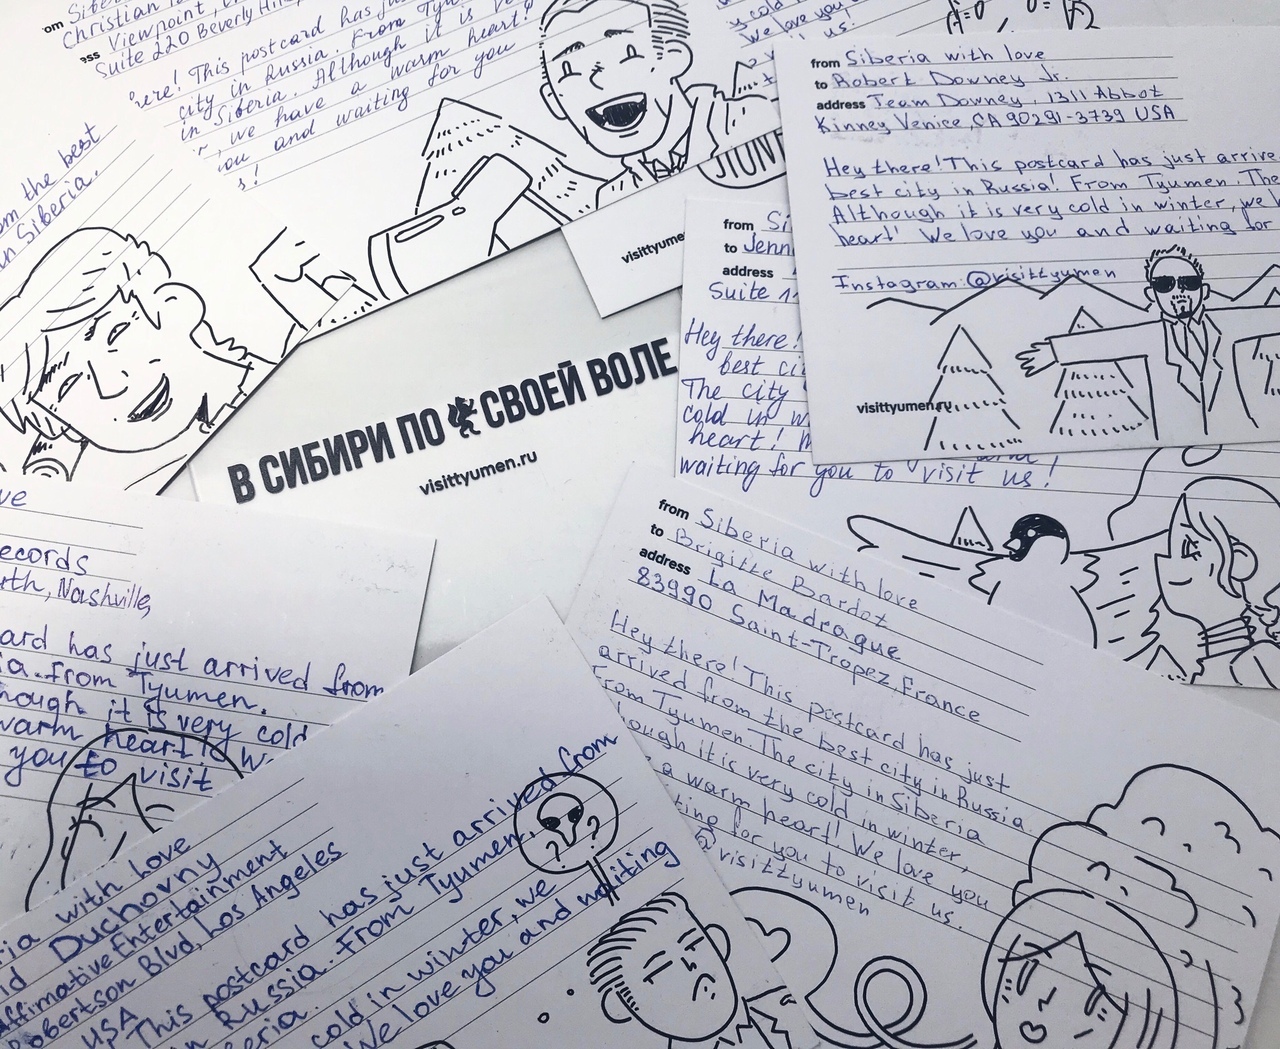 om Siber
Christian
ess Viewpoint,
Suite 220 Beverly Hil
ere! This postcard has ju
city in Russia. From Tyu
in Siberia. Although it is ve
we have a warm heart!
ou and waiting for you
s!
om the best
in Siberia.
y cold
We love you
us!
visittyume
from Siberia with love
to Robert Downey Jr.
address Team Downey, 1311 Abbot
Kinney Venice, CA 90291-3739 USA
Hey there! This postcard has just arrive
best city in Russia! From Tyumen. The
Although it is very cold in winter, we h
heart! We love you and waiting for
Instagram: @visittyumen
visittyumen.ru
from Si
to Jenn
address
Suite 11
Hey there!
best ci
The city
cold in w
heart!
waiting for you to visit us!
В СИБИРИ ПО СВОЕЙ ВОЛЕ
visittyumen.ru
ve
ecords
rth, Nashville,
ard has just arrived from
ia. From Tyumen.
hough it is very cold
warm heart! W
you to visit
from Siberia with love
to Brigitte Bardot
address La Madrague
83990 Saint-Tropez, France
Hey there! This postcard has just
arrived from the best city in Russia.
From Tyumen. The city in Siberia
ough it is very cold in winter,
a warm heart! We love you
ting for you to visit us.
@visittyumen
ria with love
id Duchovny
Affirmative Entertainment
Robertson Blvd, Los Angeles
USA
This postcard has just arrived from
n Russia. From Tyumen.
beria. cold in winter, we
We love you and waiting